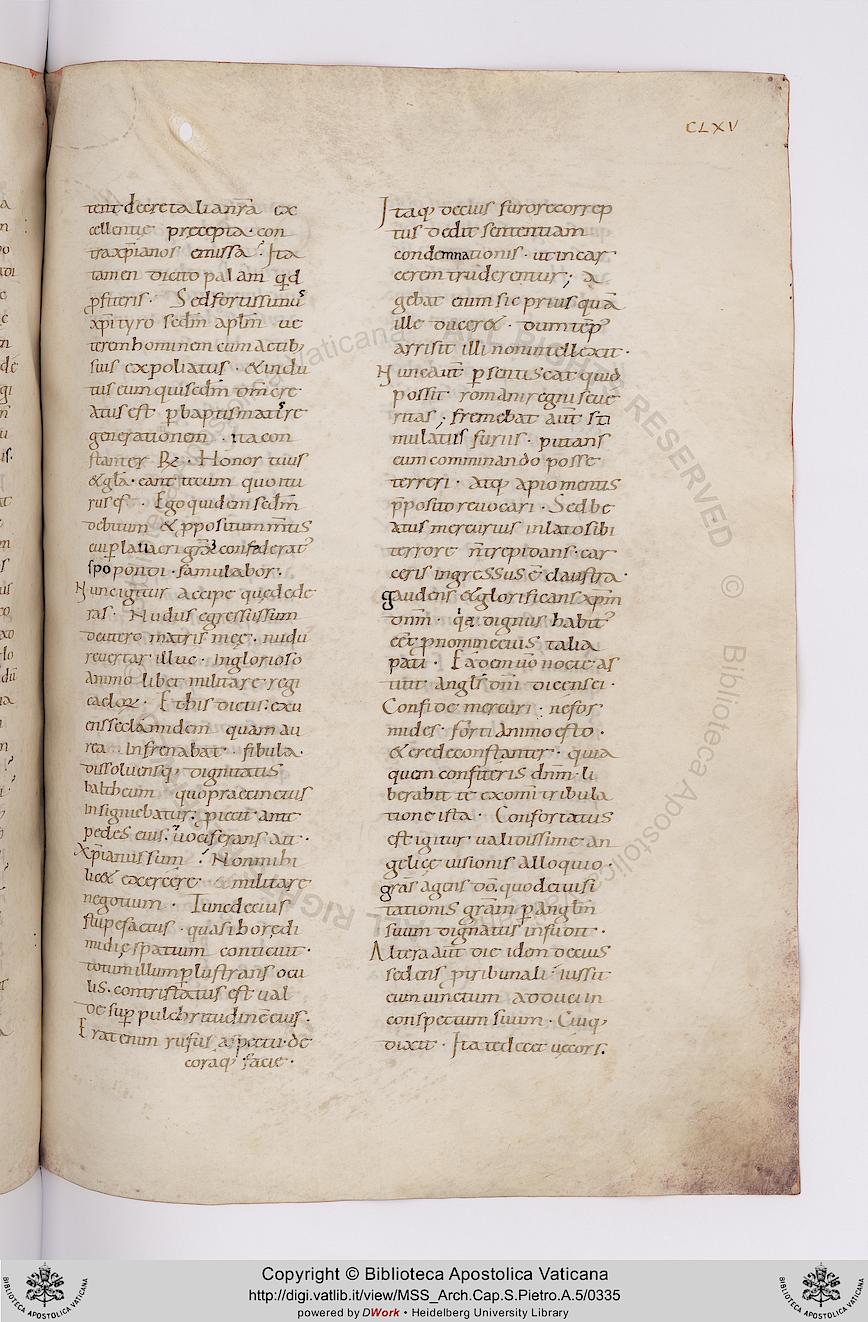 CLXV
tent decreta lianr̄a ex
cellentie precepta · con
tra xp̄ianos emissa · Ita
tamen dicito palam qd̄
ꝓfiteris · Sed fortissimus
xp̄i tyro sedm̄ ap̄lm̄ ue
terem hominem cum actib;
suis expoliatus · & indu
tus eum qui sedm̄ dm̄ cre
atus est p baptismatis re
generationem · ita con
stanter R̄ · Honor tuus
& gl̄a · eant tecum quo itu
rus es · Ego quidem sedm̄
debitum & ppositum mentis
cui p lauacri gr̄a confederat᾽
spopondi · famulabor ·
Nunc igitur accipe que dede
ras · Nudus egressus sum
de utero matris meę · nudu
reuertar illuc · Inglorioso
animo libet militare regi
caeloꝝ · Et his dictis · exu
ens se clāmidem quam au
rea infrenabat · fibula ·
dissoluensq; dignitatis
baltheum quo praecinctus
insigniebatur · piecit ante
pedes eius · uociferans ait ·
Xp̄ianus sum · Non mihi
lic& exercere militare
negotium · Tunc decius
stupefactus · quasi horę di
midię spatium conticuit ·
totum illum plustrans ocu
lis · contristatus est ual
de sup pulchritudinē eius ·
Erat enim rufus aspectu · de
coraq; facie ·
Itaq; decius furore correp
tus dedit sententiam
condemnationis · ut in car
cerem truderentur ; a
gebat eum sic prius quā
ille ducer& · dum tēp᾽
arrisit illi non intellexit ·
Nunc aut̄ psentiscat quid
possit romani regni seue
ritas ; fremebat aut̄ sti
mulatus furiis · putans
eum comminando posse
terreri · atq; a pio mentis
p̄posito reuocari · Sed be
atus mercurius inlato sibi
terrore n̄ trepidans · car
ceris ingressus ē claustra ·
gaudens & glorificans xp̄m
dnm̄ · qa dignus habit᾽
eēt p nomine eius talia
pati · Eadem uo nocte as
titit angl̄s dn̄i dicens ei ·
Confide mercuri · ne for
mides · forti animo esto ·
& crede constanter · quia
quem confiteris dnm̄ · li
berabit te ex omni tribula
tione ista · Confortatus
est igitur ualidissime an
gelicę uisionis alloquio ·
grās agens dō · quod eiuisi
tationis grām p anglm̄
suum dignatus in fudit ·
Altera aut̄ die idem decius
sedens p tribunali · iussit
eum uinctum adduci in
conspectum suum · Cuiq;
dixit · Ita te decet uecors ·
Copyright © Biblioteca Apostolica Vaticana
http://digi.vatlib.it/view/MSS_Arch.Cap.S.Pietro.A.5/0335
powered by DWork • Heidelberg University Library